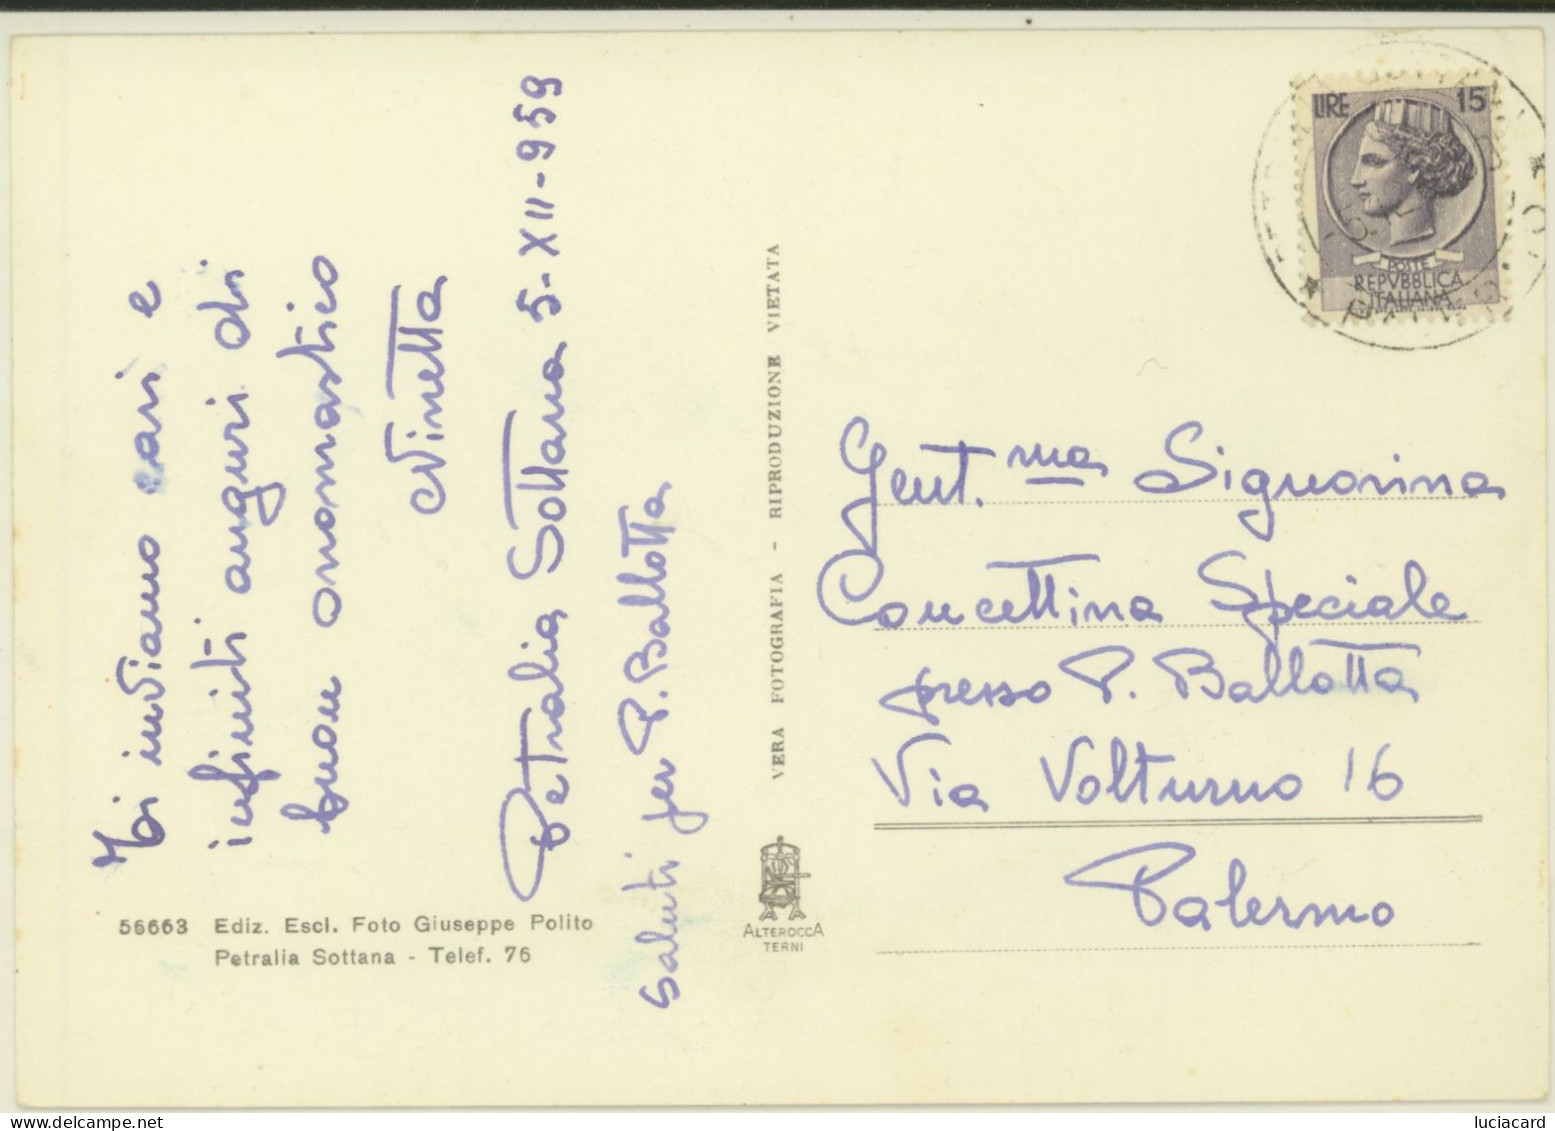 Ti inviamo cari e
infiniti auguri di
buon onomastico
Ninetta
Petralia Sottana 5-XII-959
Saluti per P. Ballotta
56663 Ediz. Escl. Foto Giuseppe Polito
Petralia Sottana - Telef. 76
VERA FOTOGRAFIA - RIPRODUZIONE VIETATA
ALTEROCCA
TERNI
LIRE 15
POSTE
REPVBBLICA
ITALIANA
Gent.ma Signorina
Concettina Speciale
presso P. Ballotta
Via Volturno 16
Palermo
luciacard